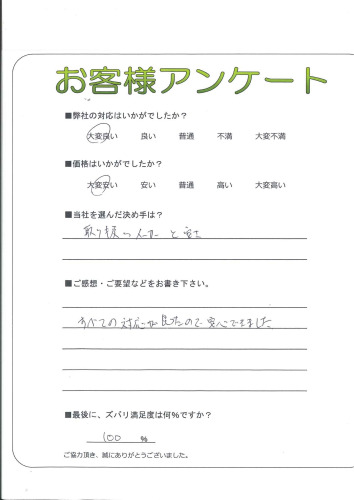 お客様アンケート
■弊社の対応はいかがでしたか？
大変良い 良い 普通 不満 大変不満
■価格はいかがでしたか？
大変安い 安い 普通 高い 大変高い
■当社を選んだ決め手は？
取り扱っ メーカー と
■ご感想・ご要望などをお書き下さい。
すべての対応が 良たので 安心できました
■最後に、ズバリ満足度は何％ですか？
100 ％
ご協力頂き、誠にありがとうございました。